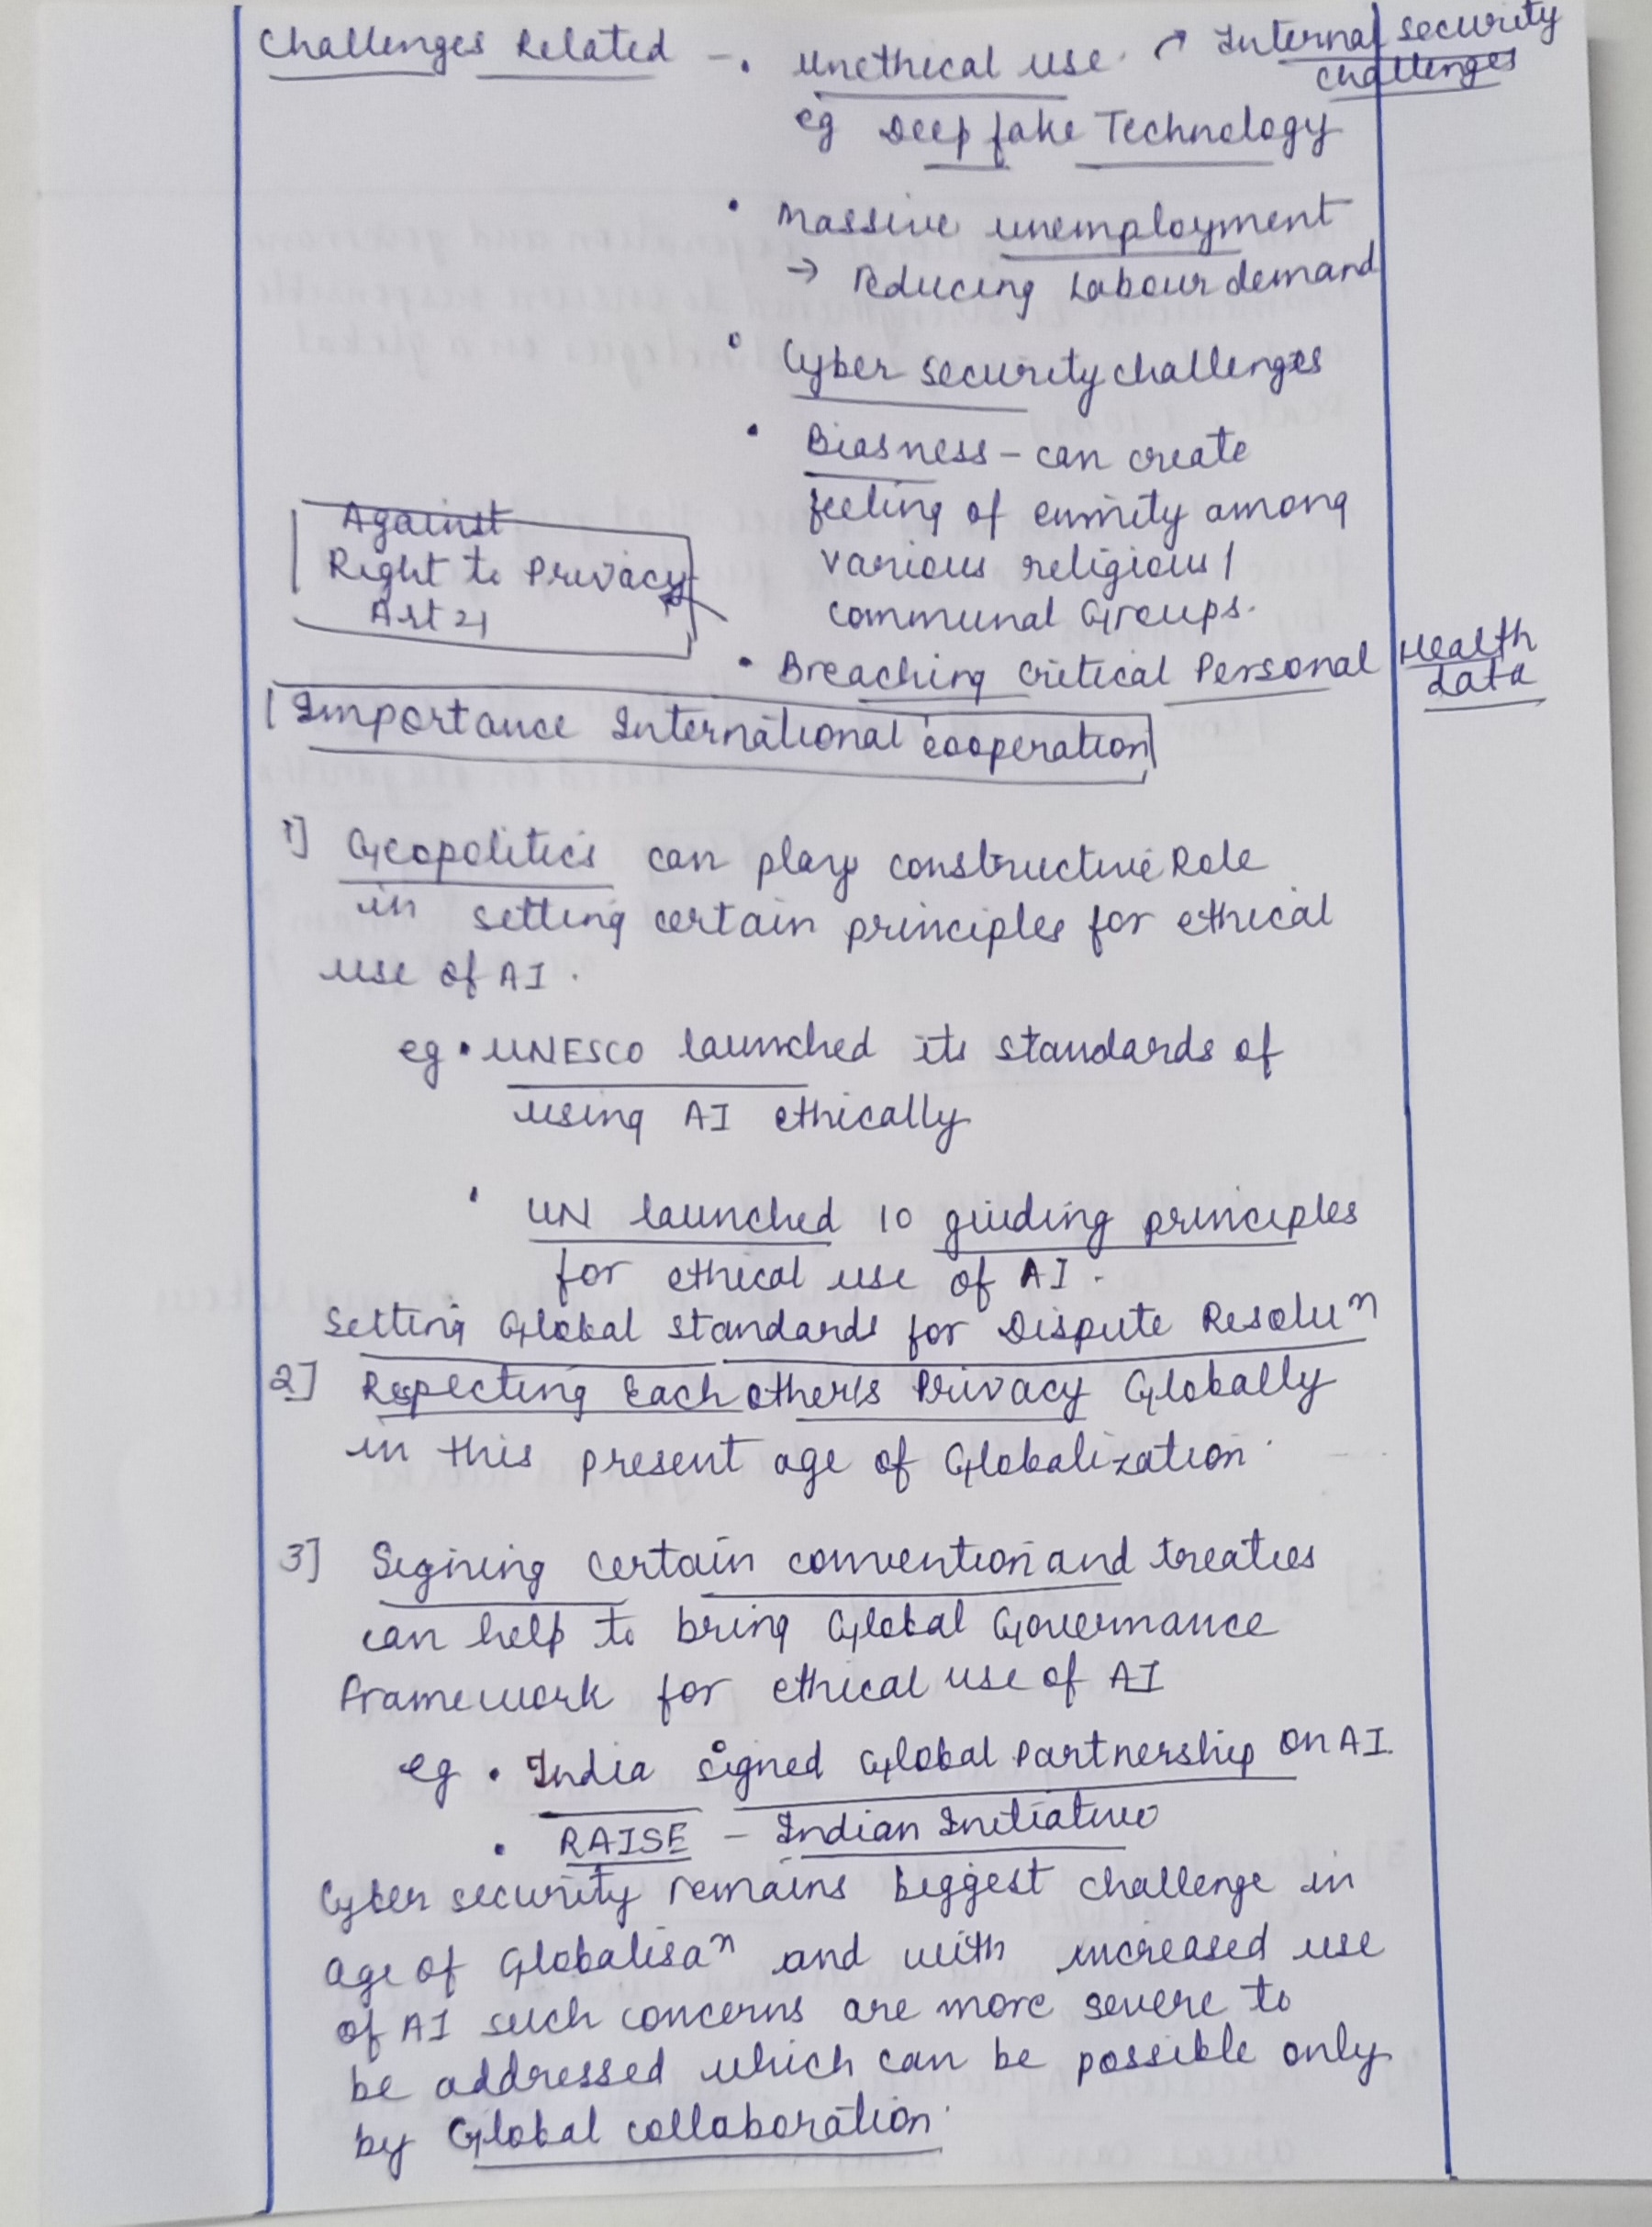 Challenges Related – • unethical use. → Internal security
challenges
eg Deep fake Technology
• Massive unemployment
→ reducing Labour demand
• Cyber security challenges
• Biasness – can create
feeling of enmity among
various religious /
communal Groups.
Against
Right to Privacy
Art 21
• Breaching critical Personal Health
data
Importance International cooperation
1] Geopolitics can play constructive Role
in setting certain principles for ethical
use of AI.
eg • UNESCO launched its standards of
using AI ethically
• UN launched 10 guiding principles
for ethical use of AI.
Setting Global standards for Dispute Resoluⁿ
2] Respecting Each other's Privacy Globally
in this present age of Globalization.
3] Signing certain convention and treaties
can help to bring Global Governance
framework for ethical use of AI
eg • India signed Global Partnership on AI.
• RAISE – Indian Initiative
Cyber security remains biggest challenge in
age of Globalisaⁿ and with increased use
of AI such concerns are more severe to
be addressed which can be possible only
by Global collaboration.